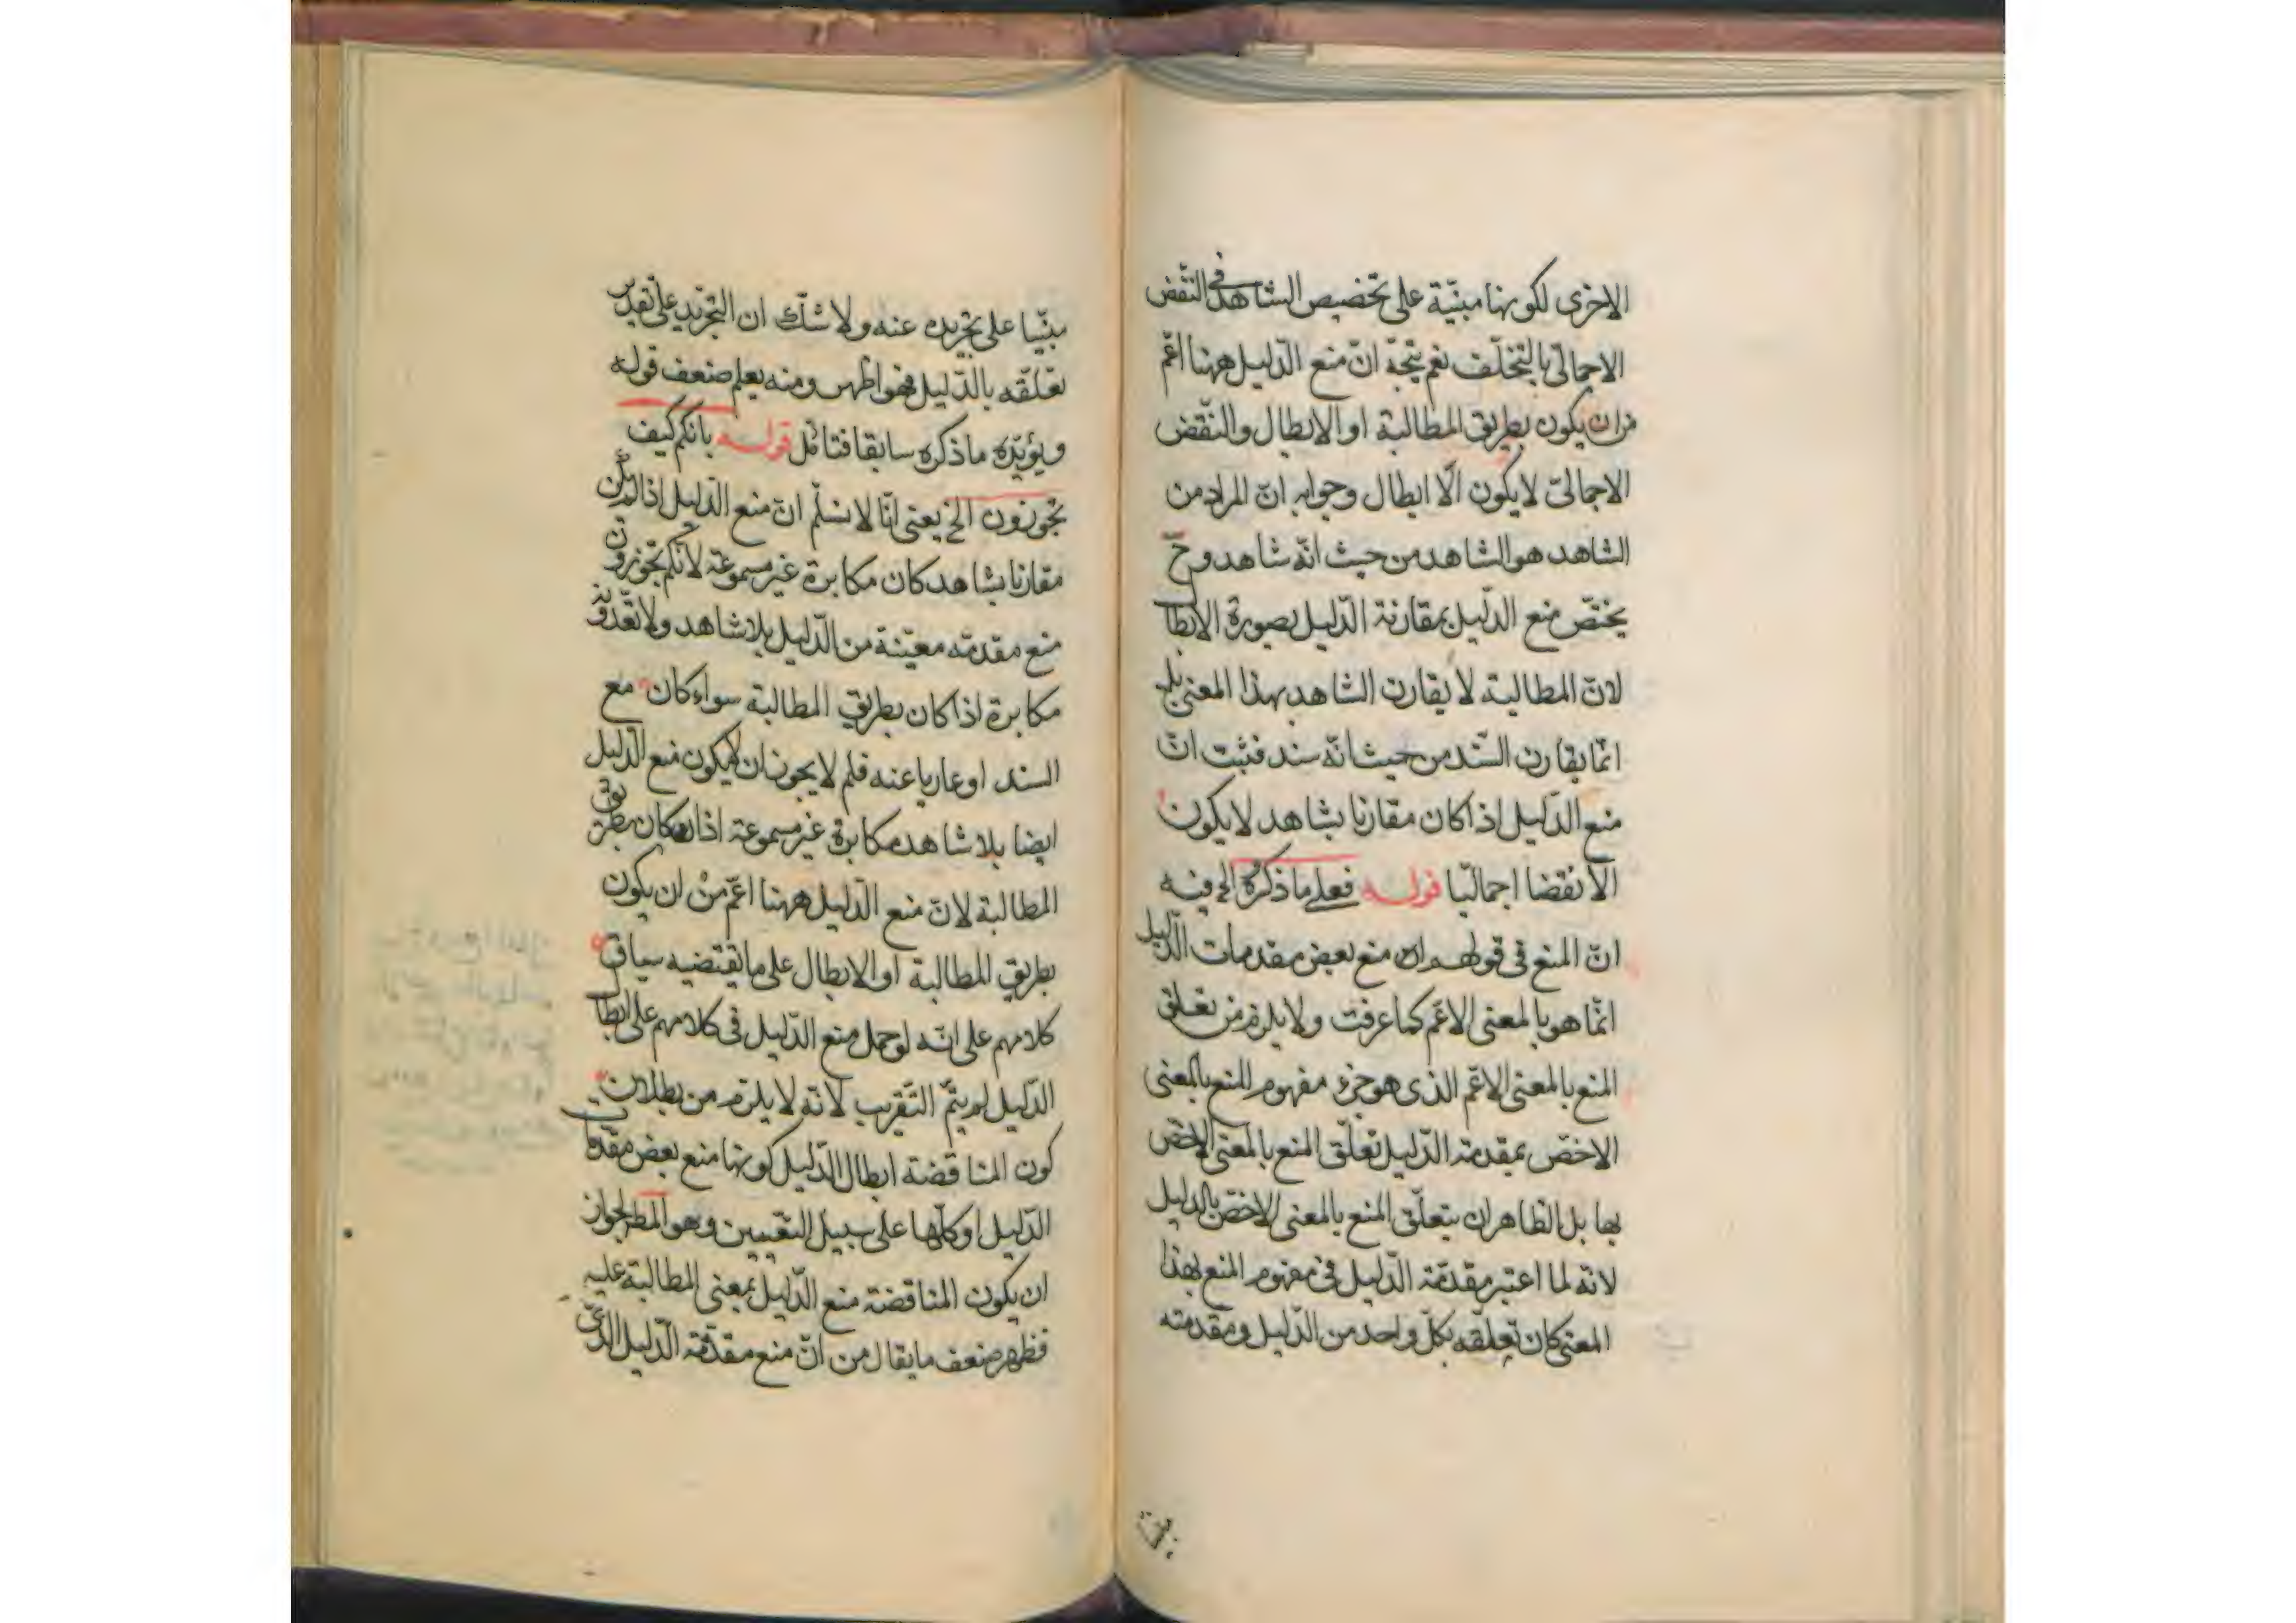 الاخرى لكونها مبنيّة على تخصيص الشاهد فى النقض
الاجمالىّ بالتخلّف نعم يتجه انّ منع الدّليل ههنا اعمّ
من ان يكون بطريق المطالبة او الابطال والنّقض
الاجمالىّ لا يكون الّا ابطال وجوابه انّ المراد من
الشاهد هو الشاهد من حيث انّه شاهد وح
يختصّ منع الدّليل بمقارنة الدّليل بصورة الابطا
لانّ المطالبة لا يقارن الشاهد بهذا المعنى بل
انّما يقارن السّند من حيث انّه سند فثبت انّ
منع الدّليل اذا كان مقارنا بشاهد لا يكون
الّا نقضا اجماليّا قوله فعلى ما ذكره الخ فيه
انّ المنع فى قولهم ان منع بعض مقدمات الدّليل
انّما هو بالمعنى الاعّم كما عرفت ولا يلزم من تعلق
المنع بالمعنى الاعّم الذى هو جزء مفهوم المنع بالمعنى
الاخصّ بمقدمة الدّليل تعلّق المنع بالمعنى الاخصّ
بها بل الظاهر ان يتعلّق المنع بالمعنى الاخصّ بالدليل
لانّه لما اعتبر مقدمّة الدّليل فى مفهوم المنع بهذا
المعنى كان تعلّقه بكلّ واحد من الدّليل ومقدمته
مبنّيا على تجريده عنه ولا شكّ ان التجريد على تقدير
تعلّقه بالدّليل فهو اظهر ومنه يعلم ضعف قوله
ويؤيّده ما ذكره سابقا فتامّل قوله بانكم كيف
تجوزون الخ يعنى انّا لا نسلّم انّ منع الدّليل اذا لم يكن
مقارنا بشاهد كان مكابرة غير مسموعة لانّكم تجوزون
منع مقدمّه معيّنة من الدّليل بلا شاهد ولا تعدّونه
مكابرة اذا كان بطريق المطالبة سواء كان مع
السند او عاريا عنه فلم لا يجوز ان لا يكون منع الدّليل
ايضا بلا شاهد مكابرة غير مسموعة اذا كان بطريق
المطالبة لانّ منع الدّليل ههنا اعّم من ان يكون
بطريق المطالبة او الابطال على ما يقتضيه سياق
كلامهم على انّه لو حمل منع الدّليل فى كلامهم على ابطا
الدّليل لم يتمّ التّقريب لانّه لا يلزم من بطلان
كون المناقضة ابطال الدّليل كونها منع بعض مقدّما
الدّليل او كلّها على سبيل التّعيين وهو المط لجواز
ان يكون المناقضة منع الدّليل بمعنى المطالبة عليه
فظهر ضعف ما يقال من انّ منع مقدّمة الدّليل